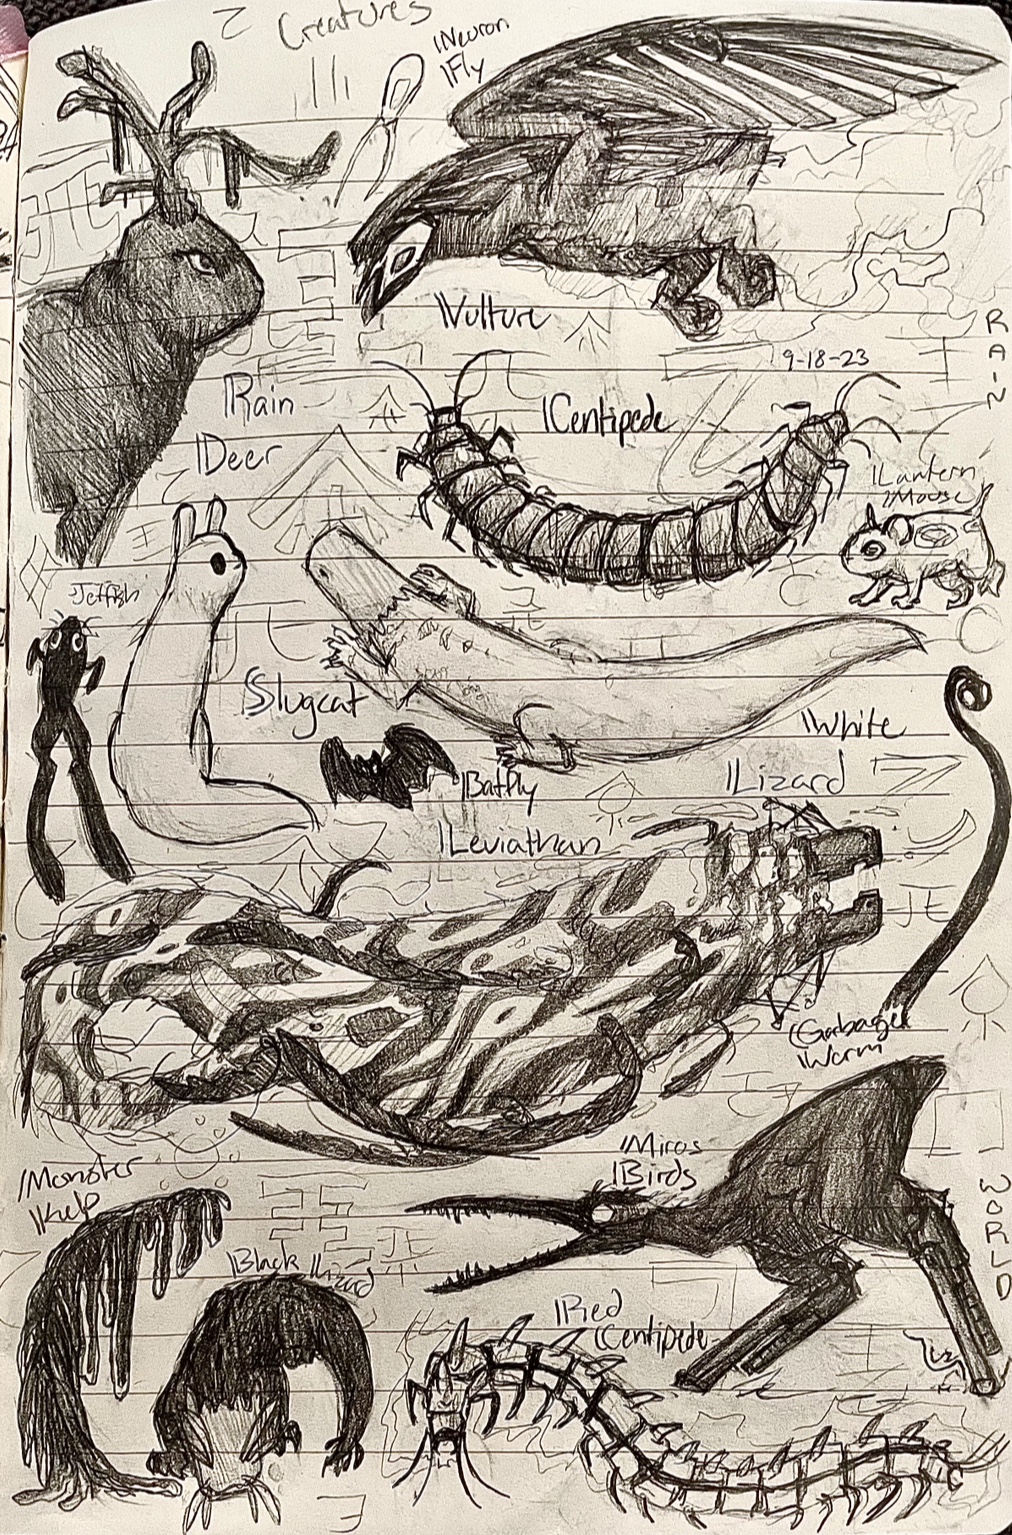 Creatures
Neuron
Fly
Vulture
9-18-23
RAIN
Rain
Deer
Centipede
Lantern
Mouse
Jetfish
Slugcat
White
Lizard
Batfly
Leviathan
Garbage
Worm
Monster
Kelp
Miros
Birds
WORLD
Black Lizard
Red
Centipede